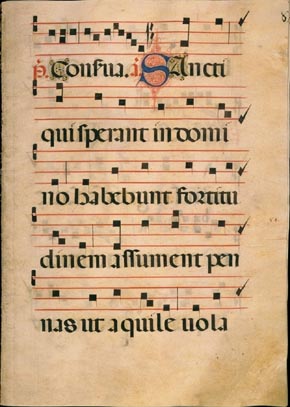 p̄. Conſtia. a. Sancti
qui ſperant in domi
no habebunt fortitu
dinem aſſument pen
nas ut aquile uola